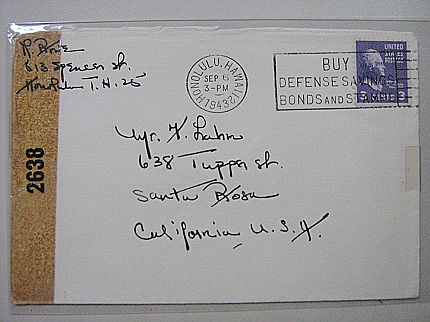 613 Spencer St.
Honolulu T. H. 25
HONOLULU, HAWAII
SEP 6
3-PM
1943
BUY
DEFENSE SAVINGS
BONDS AND STAMPS
UNITED
STATES
POSTAGE
3 3
2638
638 Tupper St.
Santa Rosa
California U. S. A.